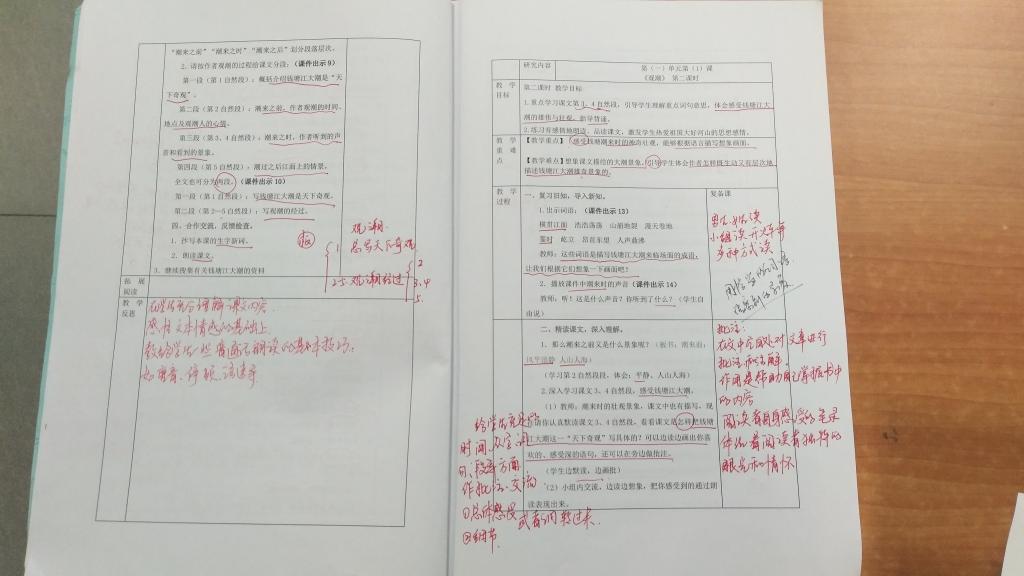 “潮来之前”“潮来之时”“潮来之后”划分段落层次。
2. 请按作者观潮的过程给课文分段:(课件出示 9)
第一段(第 1 自然段):概括介绍钱塘江大潮是“天
下奇观”。
第二段(第 2 自然段):潮来之前,作者观潮的时间、
地点及观潮人的心情。
第三段(第 3、4 自然段):潮来之时,作者听到的声
音和看到的景象。
第四段(第 5 自然段):潮过之后江面上的情景。
全文也可分为两段。(课件出示 10)
第一段(第 1 自然段):写钱塘江大潮是天下奇观。
第二段(第 2—5 自然段):写观潮的经过。
四、合作交流,反馈检查。
1. 抄写本课的生字新词。
2. 朗读课文。
3. 继续搜集有关钱塘江大潮的资料
观潮
1 总写天下奇观
2-5 观潮经过
2
3.4
5.
拓展
阅读
教学
反思
在学生充分理解课文内容
感悟文本情感的基础上
教给学生一些普通话朗读的基本技巧:
如重音、停顿、语速等
研究内容
第(一)单元第(1)课
《观潮》 第二课时
教学
目标
第二课时 教学目标:
1.重点学习课文第 3、4 自然段,引导学生理解重点词句意思,体会感受钱塘江大
潮的雄伟与壮观。
2.练习有感情地朗读,品读课文,激发学生热爱祖国大好河山的思想感情。
教学
重难
点
【教学重点】感受钱塘潮来时的雄奇壮观,能够根据语言描写想象画面。
【教学难点】想象课文描绘的大潮景象,引导学生体会作者怎样既生动又有层次地
描述钱塘江大潮雄奇景象的。
教学
过程
一、复习旧知,导入新知。
1.出示词语:(课件出示 13)
横贯江面 浩浩荡荡 山崩地裂 漫天卷地
霎时 屹立 昂首东望 人声鼎沸
教师:这些词语是描写钱塘江大潮来临场面的成语,
让我们根据它们想象一下画面吧?
2. 播放课件中潮来时的声音(课件出示 14)
教师:听!这是什么声音?你听到了什么?(学生自
由说)
复备课
男生、女生读
小组读、开火车等
多种方式读
二、精读课文,深入理解。
1. 那么潮来之前又是什么景象呢?(板书:潮来前:
风平浪静 人山人海)
(学习第 2 自然段,体会:平静、人山人海)
2.深入学习课文 3、4 自然段,感受钱塘江大潮。
(1)教师:潮来时的壮观景象,课文中也有描写,现
在请你认真默读课文 3、4 自然段,看看课文是怎样把钱塘
江大潮这一“天下奇观”写具体的?可以边读边画出你喜
欢的、感受深的语句,还可以在旁边做批注。
(学生边默读,边画批)
(2)小组内交流,边读边想象,把你感受到的通过朗
读表现出来。
批注:
在文中空白处对文章进行
批注和注解
作用是帮助自己掌握书中
的内容
阅读者自身感受的笔录
体现着阅读者独特的
眼光和情怀
给学生充足的
时间,从字、词
句、段等方面
作批注、交流
①总体感受
②细节
或者调转过来.